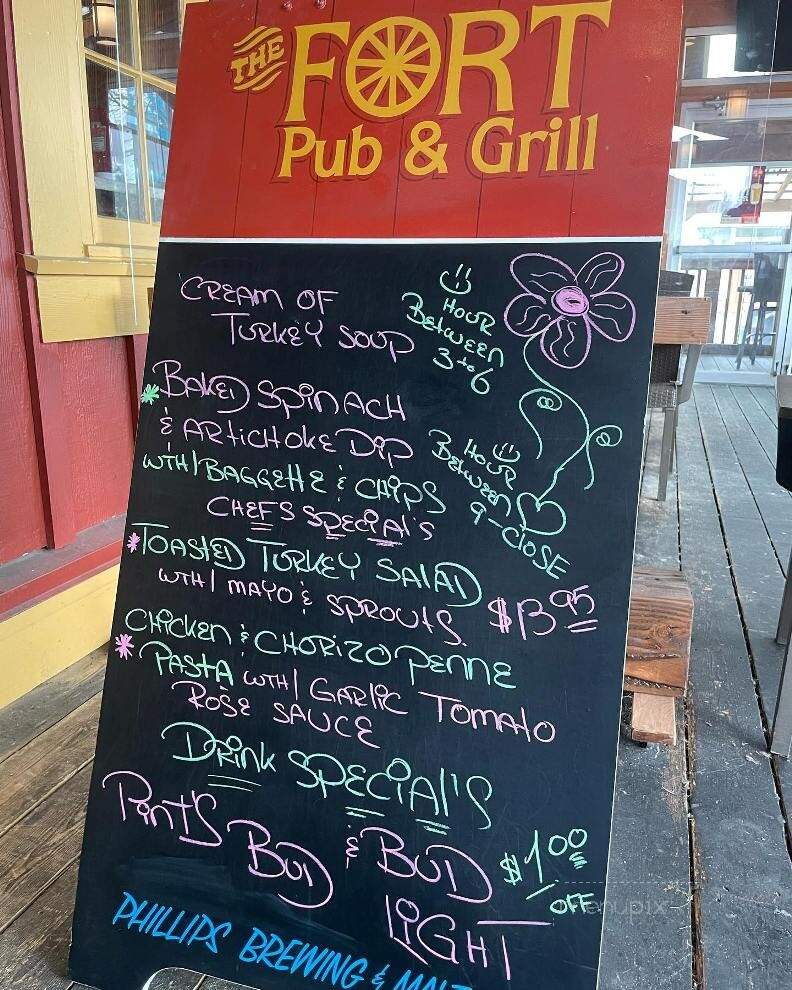 THE FORT
Pub & Grill
CREAM OF
TURKEY SOUP
HOUR
BETWEEN
3 to 6
* BAKED SPINACH
& ARTICHOKE DIP
WTH/ BAGGETTE & CHIPS
HOUR
BETWEEN
9-CLOSE
CHEFS SPECIAL'S
* TOASTED TURKEY SALAD
WTH/ MAYO & SPROUTS. $13 95
CHICKEN & CHORIZO PENNE
* PASTA WTH/ GARLIC TOMATO
ROSE SAUCE
DRINK SPECIAL'S
PINT'S BUD & BUD
LIGHT
$1.00
OFF
menupix
PHILLIPS BREWING & MALT